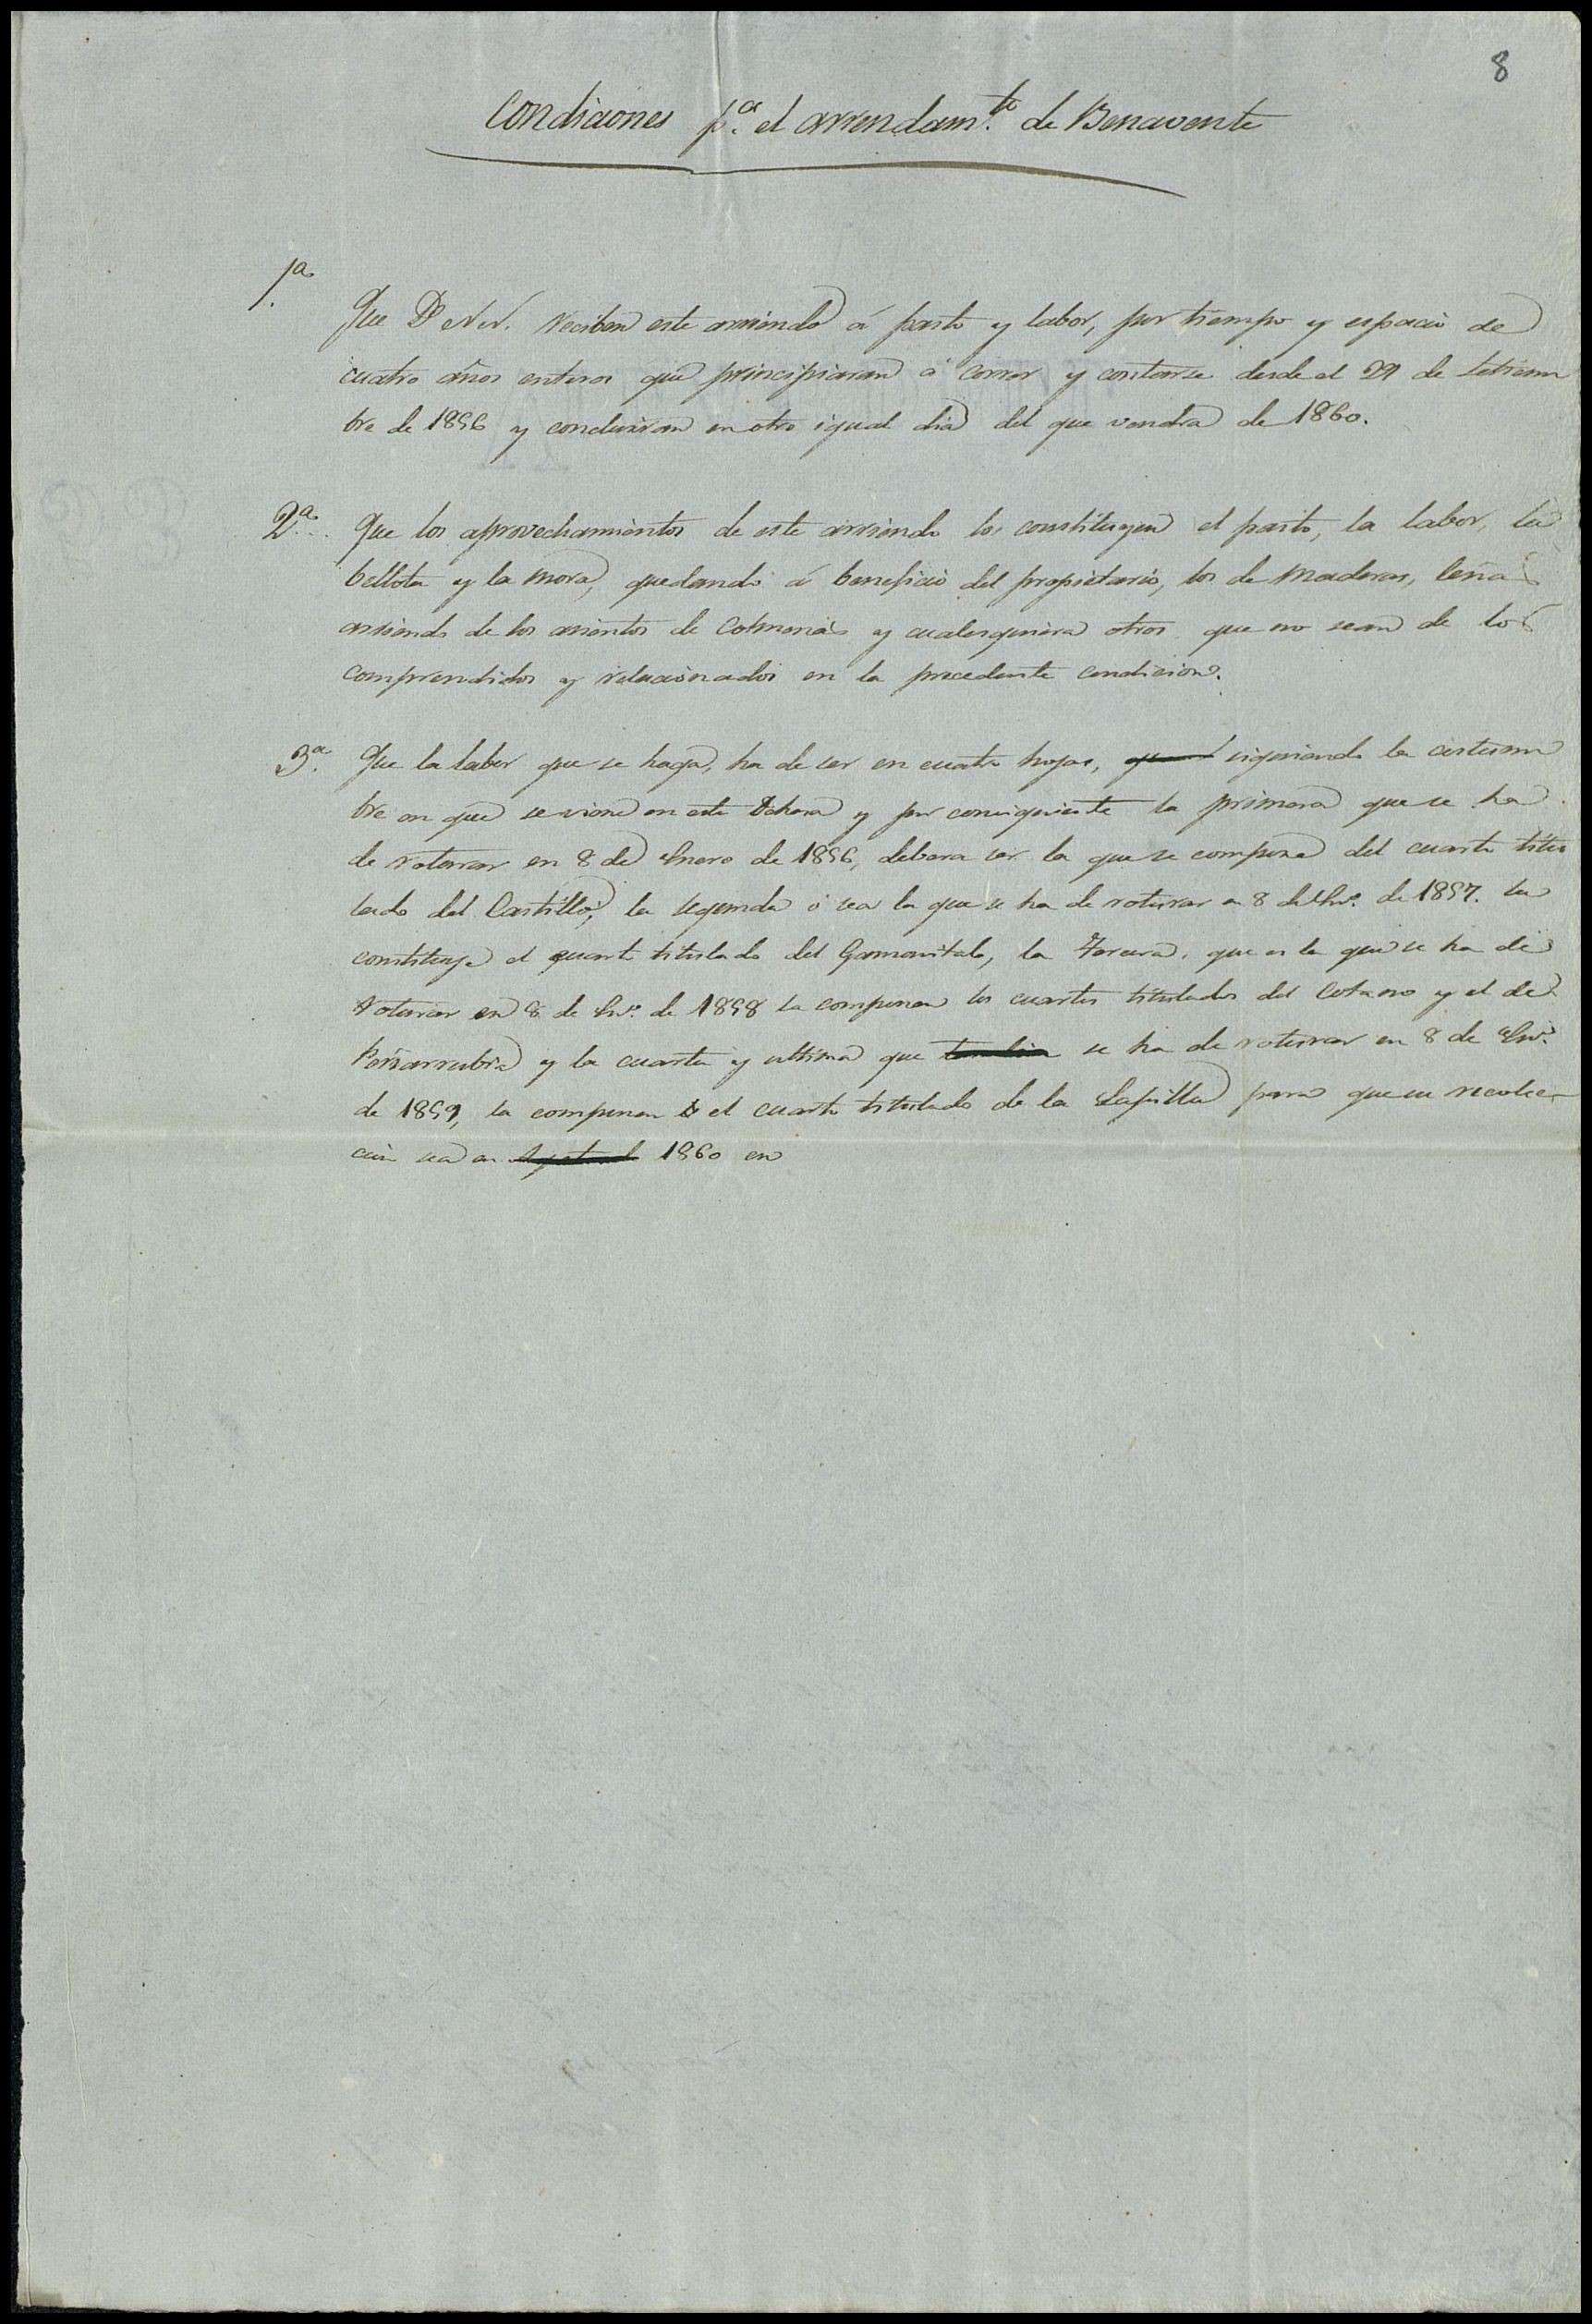 8
Condiciones p.ª el arrendam.to de Benavente
1ª
Que D. N. N. reciben este arriendo á pasto y labor, por tiempo y espacio de
cuatro años enteros que principiaran á correr y contarse desde el 29 de Setiem
bre de 1856 y concluiran en otro igual dia del que vendra de 1860.
2.ª Que los aprovechamientos de este arriendo los constituyen el pasto, la labor, la
bellota y la mora, quedando á beneficio del propietario, los de maderas, leñas
arriendo de los asientos de Colmenas y cualesquiera otros que no sean de los
comprendidos y relacionados en la precedente condicion.
3.ª Que la labor que se haga, ha de ser en cuatro hojas, siguiendo la costum
bre en que se viene en esta Dehesa y por consiguiente la primera que se ha
de roturar en 8 de Enero de 1856, debera ser la que se compone del cuarto titu
lado del Castillo, la segunda ó sea la que se ha de roturar en 8 de En.º de 1857. la
constituye el quarto titulado del Gamonital, la Tercera, que es la que se ha de
roturar en 8 de En.º de 1858 la componen los cuartos titulados del Cotano y el de
Peñarrubia y la cuarta y ultima que se ha de roturar en 8 de En.º
de 1859, la componen el cuarto titulado de la para que su recolec-
cion sea en 1860 en